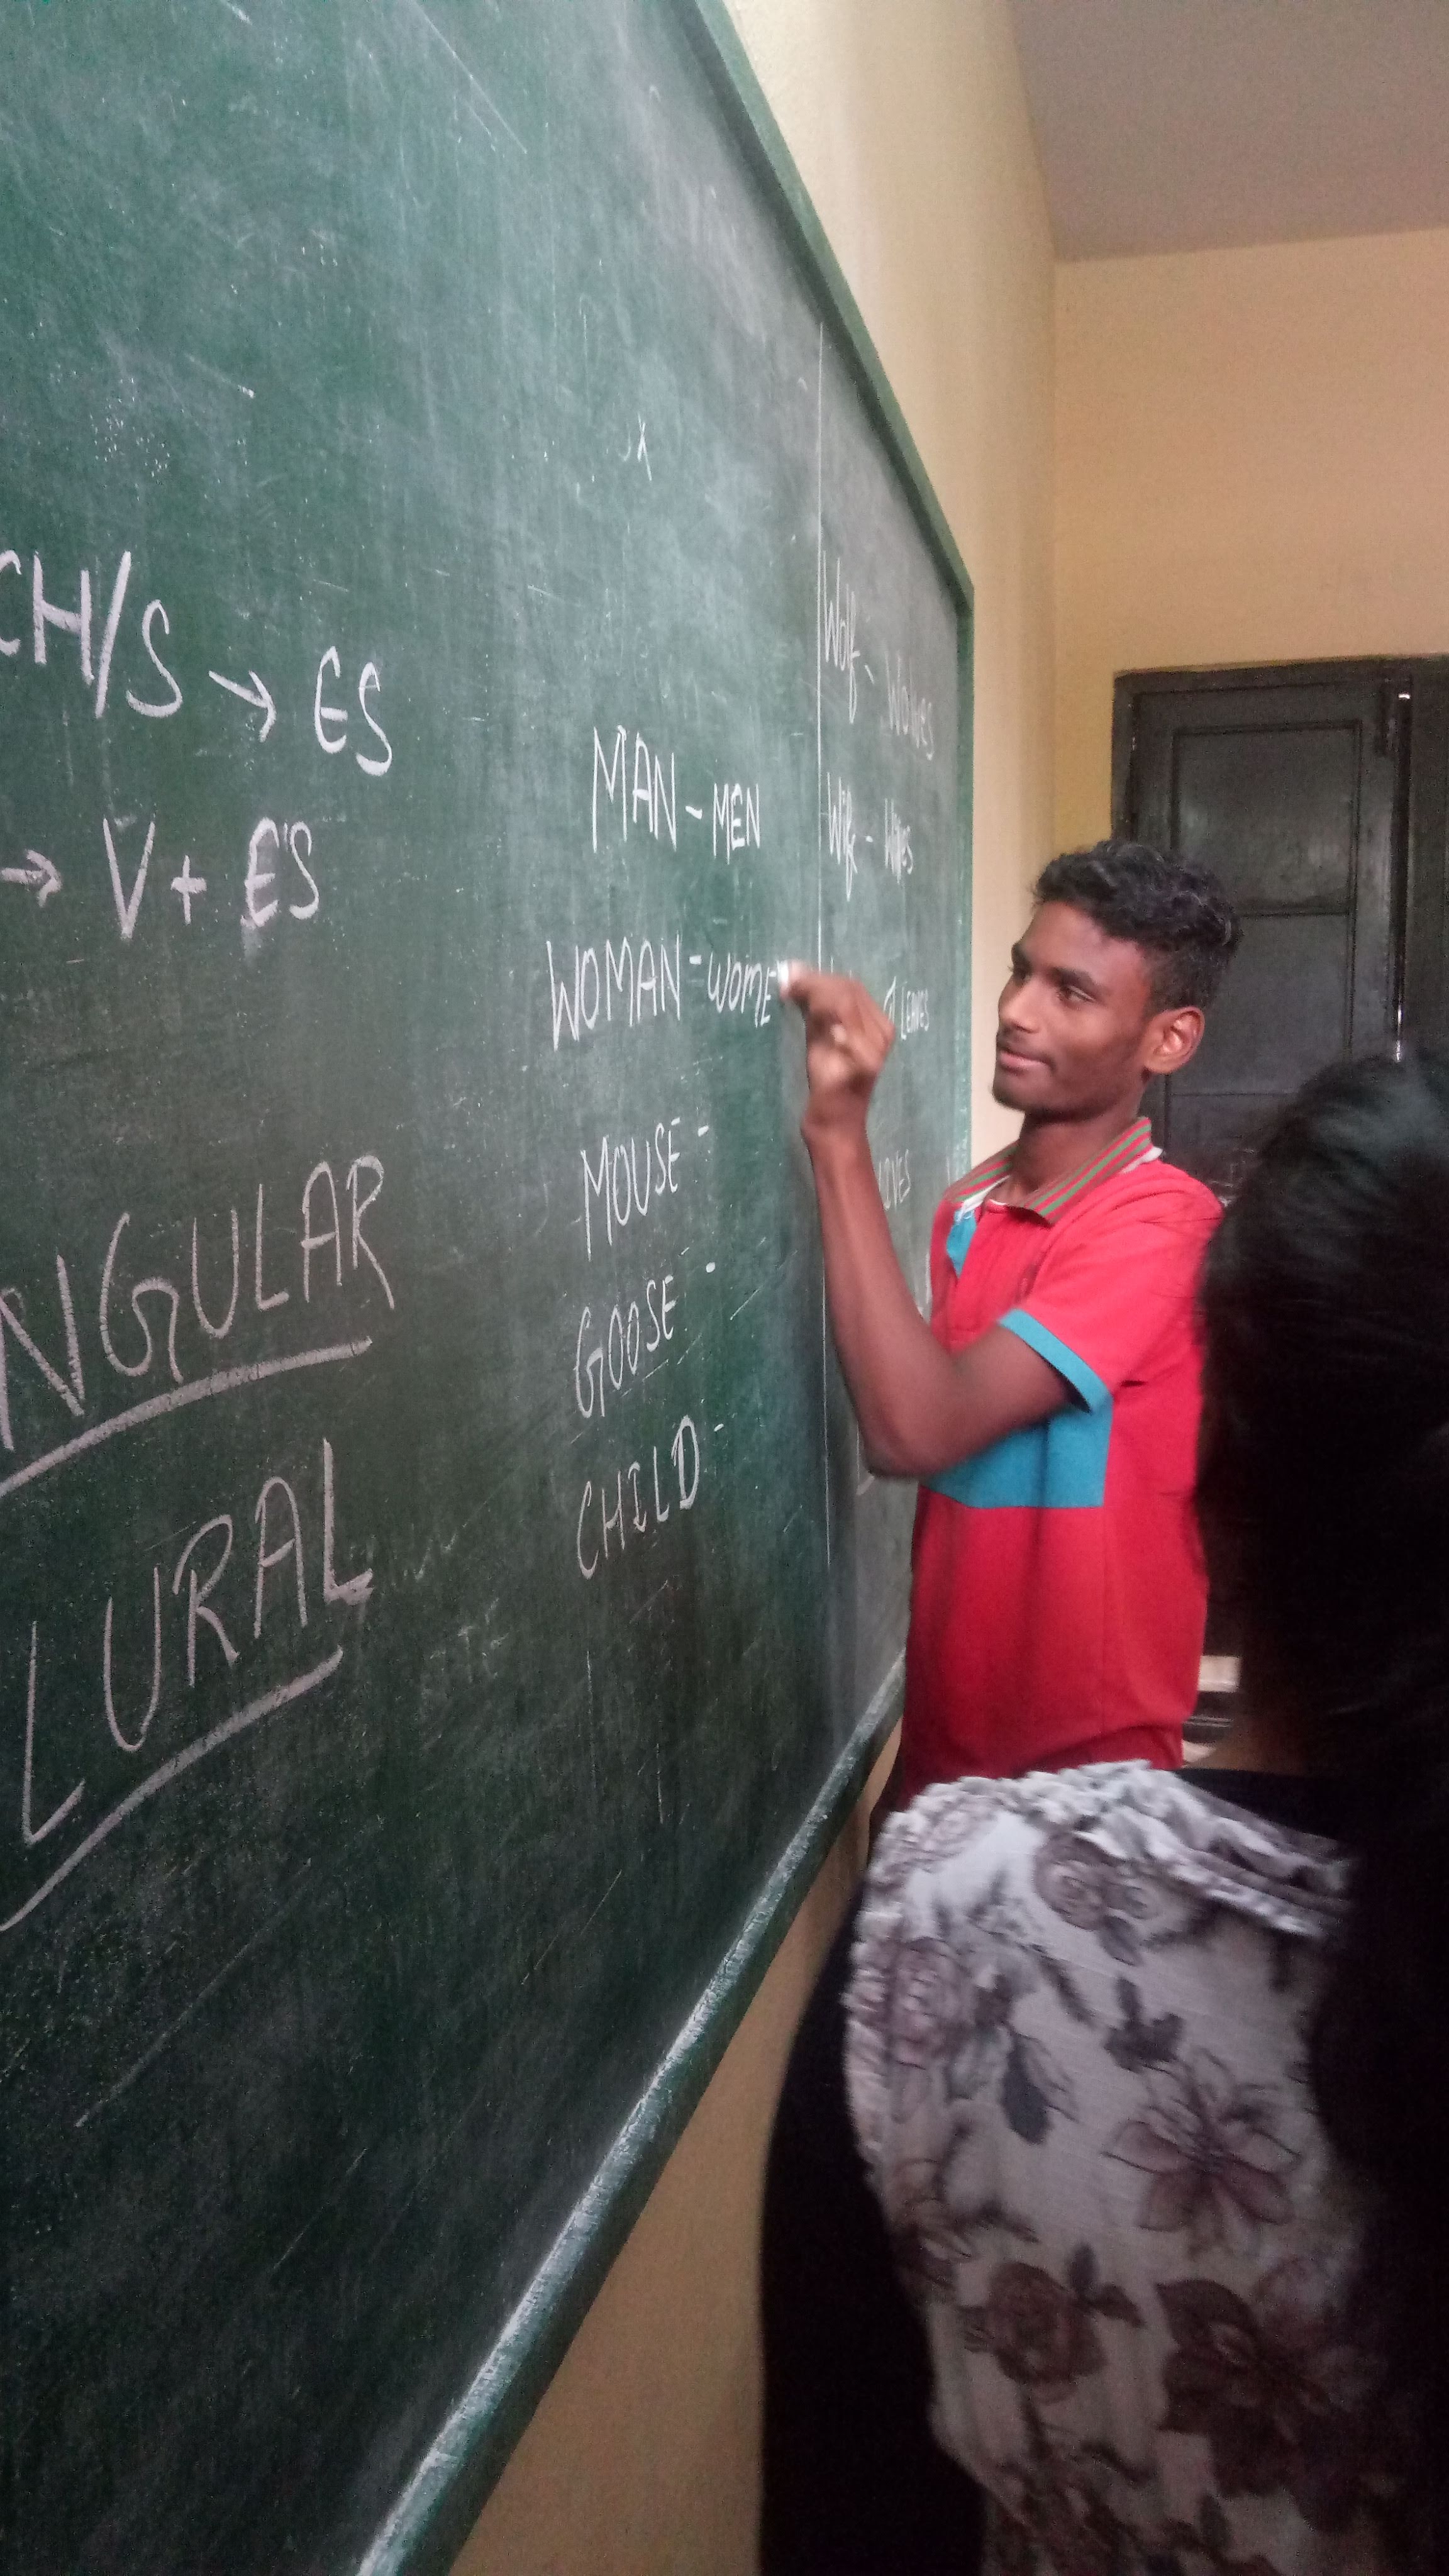 CH/S → ES
→ V + ES
NGULAR
LURAL
MAN - MEN
WOMAN - WOME
MOUSE -
GOOSE -
CHILD -
Wolf - Wolves
Wife - Wives
LEAVES
OVES